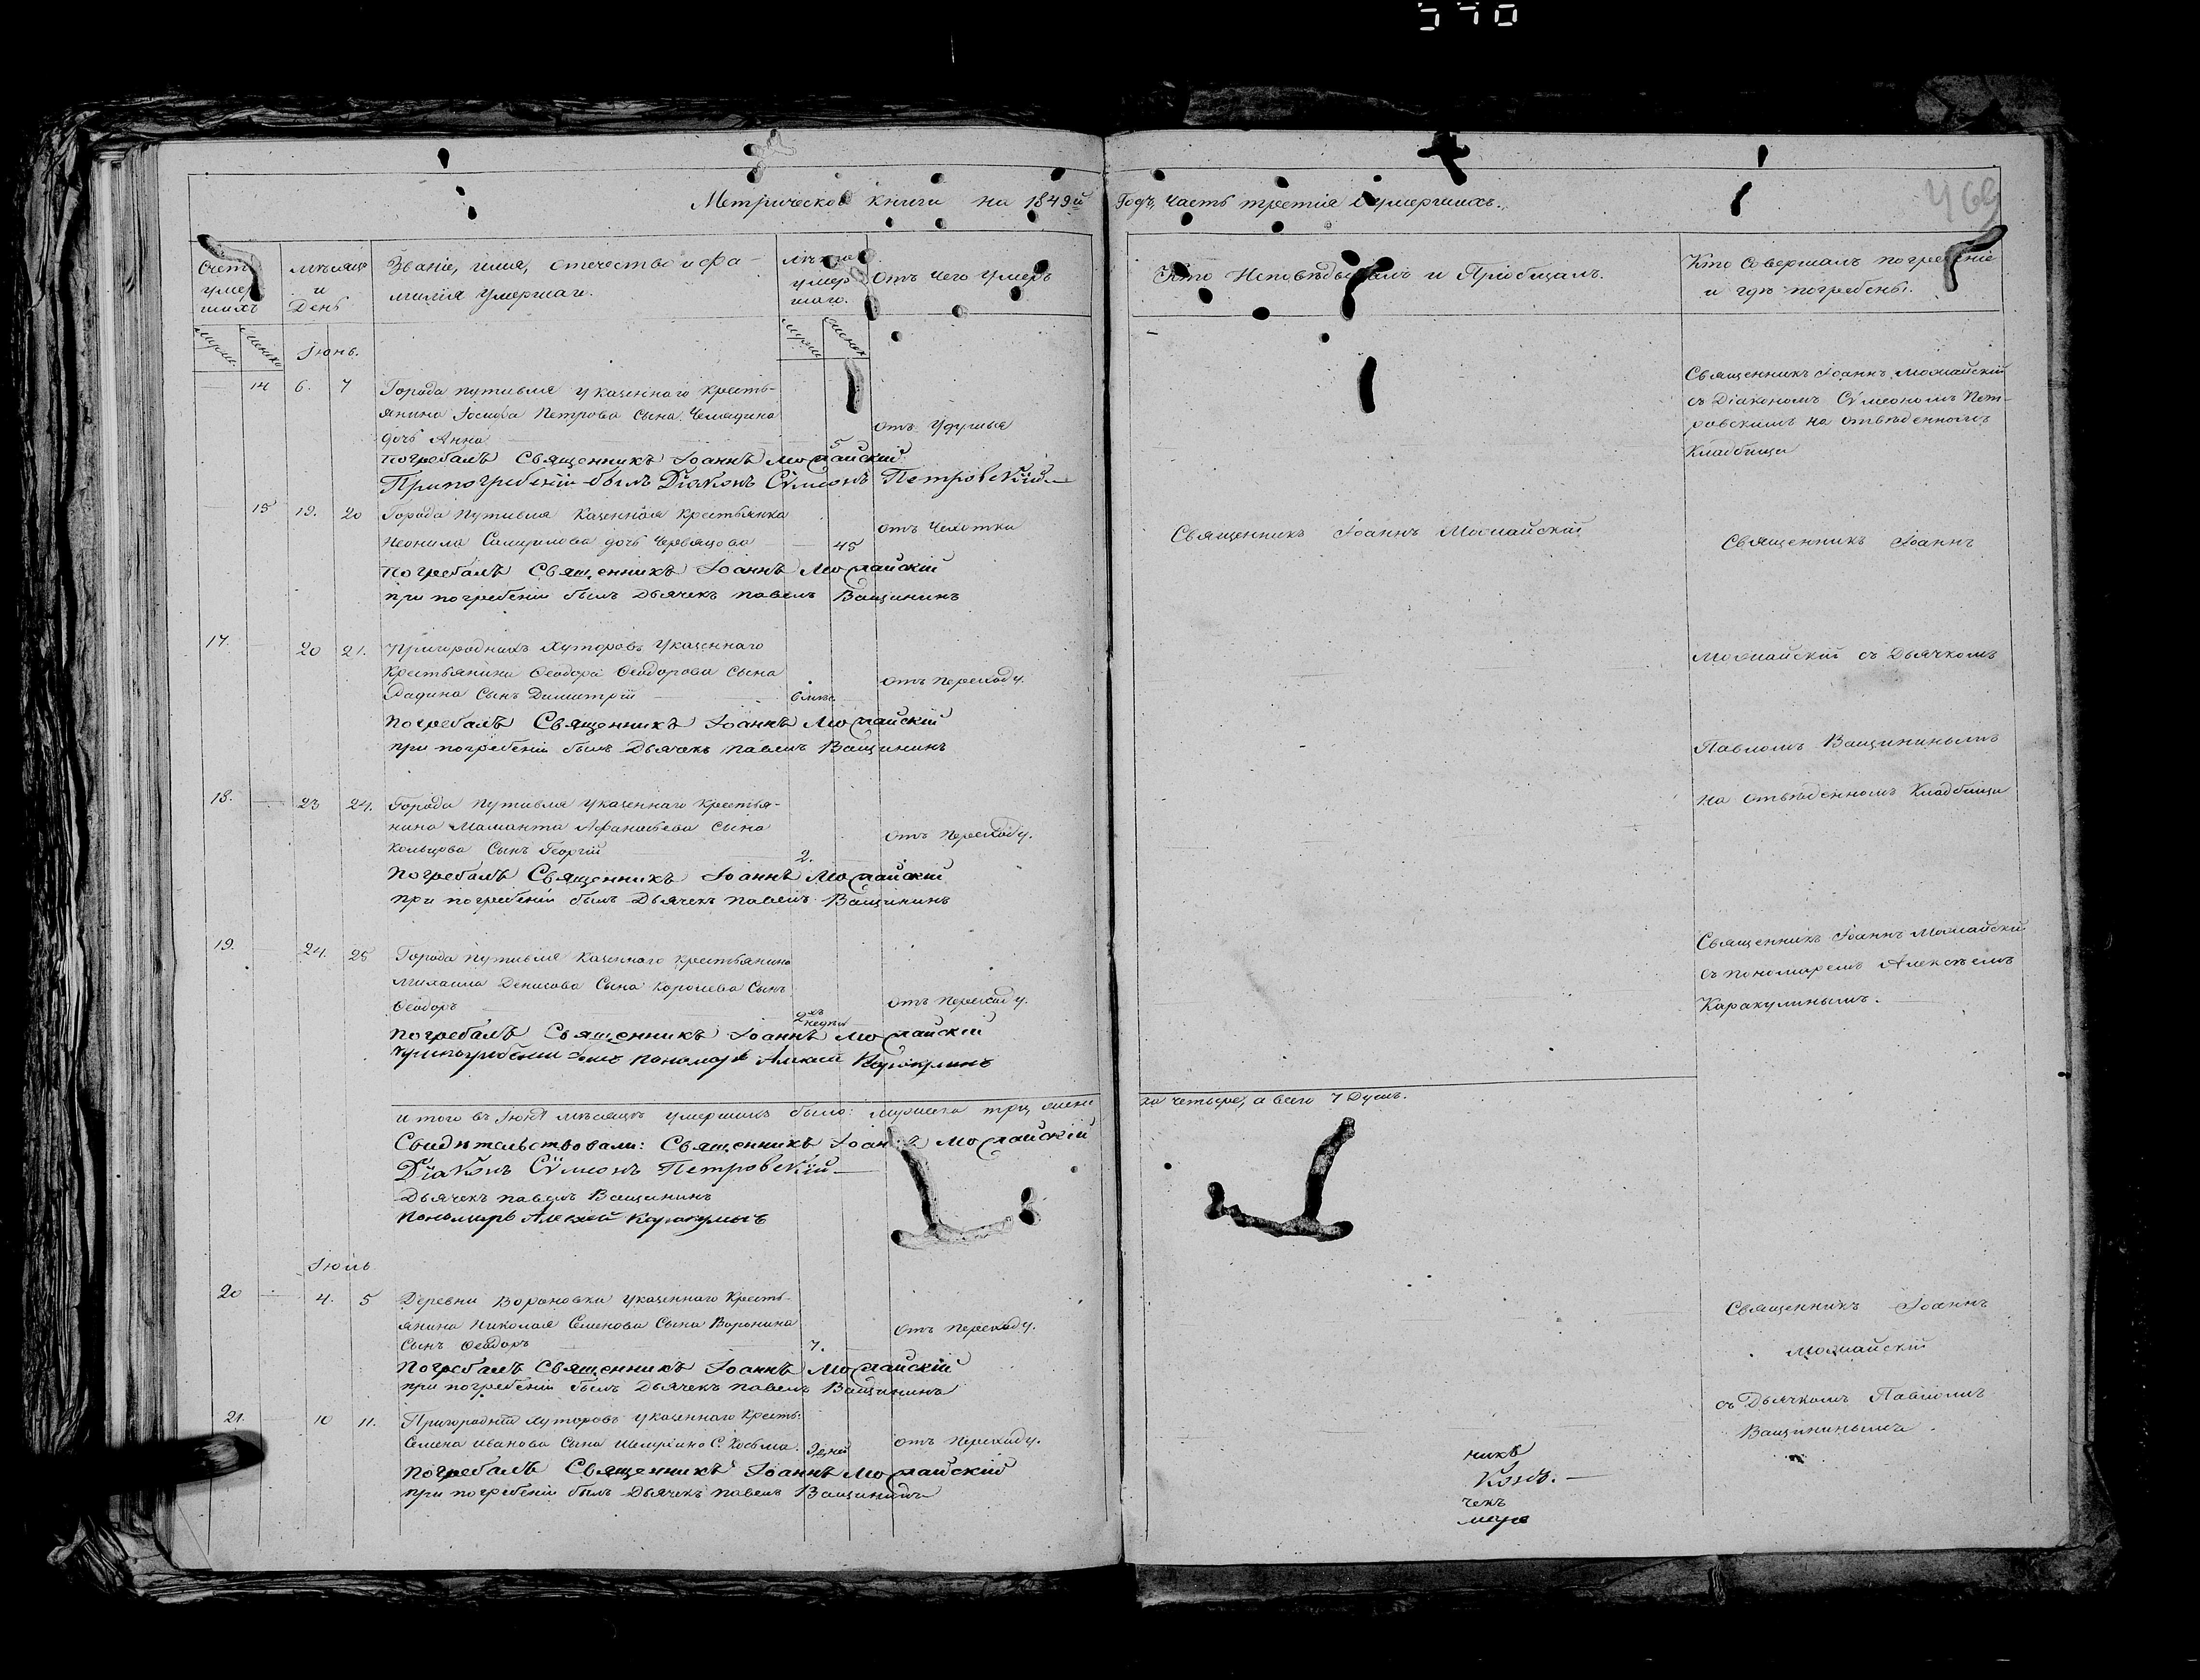 340
Метрической книги на 1849й Годъ, Часть третія о умершихъ.
469
Счетъ умершихъ
Мѣсяцъ и День
Званіе, имя, отечество и фамилія умершаго.
Лѣта умершаго.
Отъ чего умеръ
Кто Исповѣдывалъ и Пріобщалъ.
Кто Совершалъ погребеніе и гдѣ погребены.
Іюнь.
14 6. 7 Города Путивля У казеннаго крестьянина Іосифа Петрова Сына
дочь Анна 5 отъ Удушья
Погребалъ Священникъ Іоаннъ Можайскій
При погребеніи былъ Діаконъ Сѵмеонъ Петровскій
Священникъ Іоаннъ Можайскій
съ Діакономъ Сѵмеономъ Пет-
ровскимъ на отвѣденномъ
Кладбищи
15 19. 20 Города Путивля Казенная Крестьянка
Неонила дочь 45 отъ Чехотки
Погребалъ Священникъ Іоаннъ Можайскій
при погребеніи былъ Дьячекъ Павелъ Ващининъ
Священникъ Іоаннъ Можайскій
Священникъ Іоаннъ
17. 20 21. Пригородныхъ Хуторовъ У казеннаго
Крестьянина Ѳеодора Ѳеодорова Сына
Сынъ Димитрій 6 мѣс. отъ Переходу.
Погребалъ Священникъ Іоаннъ Можайскій
при погребеніи былъ Дьячекъ Павелъ Ващининъ
Можайскій съ Дьячкомъ
Павломъ Ващининымъ
18. 23 24. Города Путивля У казеннаго Крестья-
нина Маманта Афанасьева Сына
Кольцова Сынъ Георгій 2. отъ Переходу.
Погребалъ Священникъ Іоаннъ Можайскій
при погребеніи былъ Дьячекъ Павелъ Ващининъ
на отвѣденномъ Кладбищи
19. 24. 25 Города Путивля Казеннаго Крестьянина
Михаила Денисова Сына Сынъ
Ѳеодоръ 2хъ недѣл. отъ Переходу.
Погребалъ Священникъ Іоаннъ Можайскій
При погребеніи былъ Пономарь Алексей Каракулинъ
Священникъ Іоаннъ Можайскій
съ пономаремъ Алексѣемъ
Каракулинымъ.
и того въ Іюнѣ мѣсяцѣ умершихъ было: мужеска три, женска четыре, а всего 7 Душъ.
Свидѣтельствовали: Священникъ Іоаннъ Можайскій
Діаконъ Сѵмеонъ Петровскій
Дьячекъ Павелъ Ващининъ
Пономарь Алексей Каракулинъ
Іюль
20 4. 5 Деревни Вороновки У казеннаго Кресть-
янина Николая Семенова Сына Воронина
Сынъ Ѳеодоръ 7. отъ Переходу.
Погребалъ Священникъ Іоаннъ Можайскій
при погребеніи былъ Дьячекъ Павелъ Ващининъ
Священникъ Іоаннъ
Можайскій
съ Дьячкомъ Павломъ
Ващининымъ
21. 10 11. Пригородныхъ Хуторовъ У казеннаго Кресть:
Семена Иванова Сына С. Косьма. дней отъ Переходу.
Погребалъ Священникъ Іоаннъ Можайскій
при погребеніи былъ Дьячекъ Павелъ Ващининъ
никъ
чекъ
марь